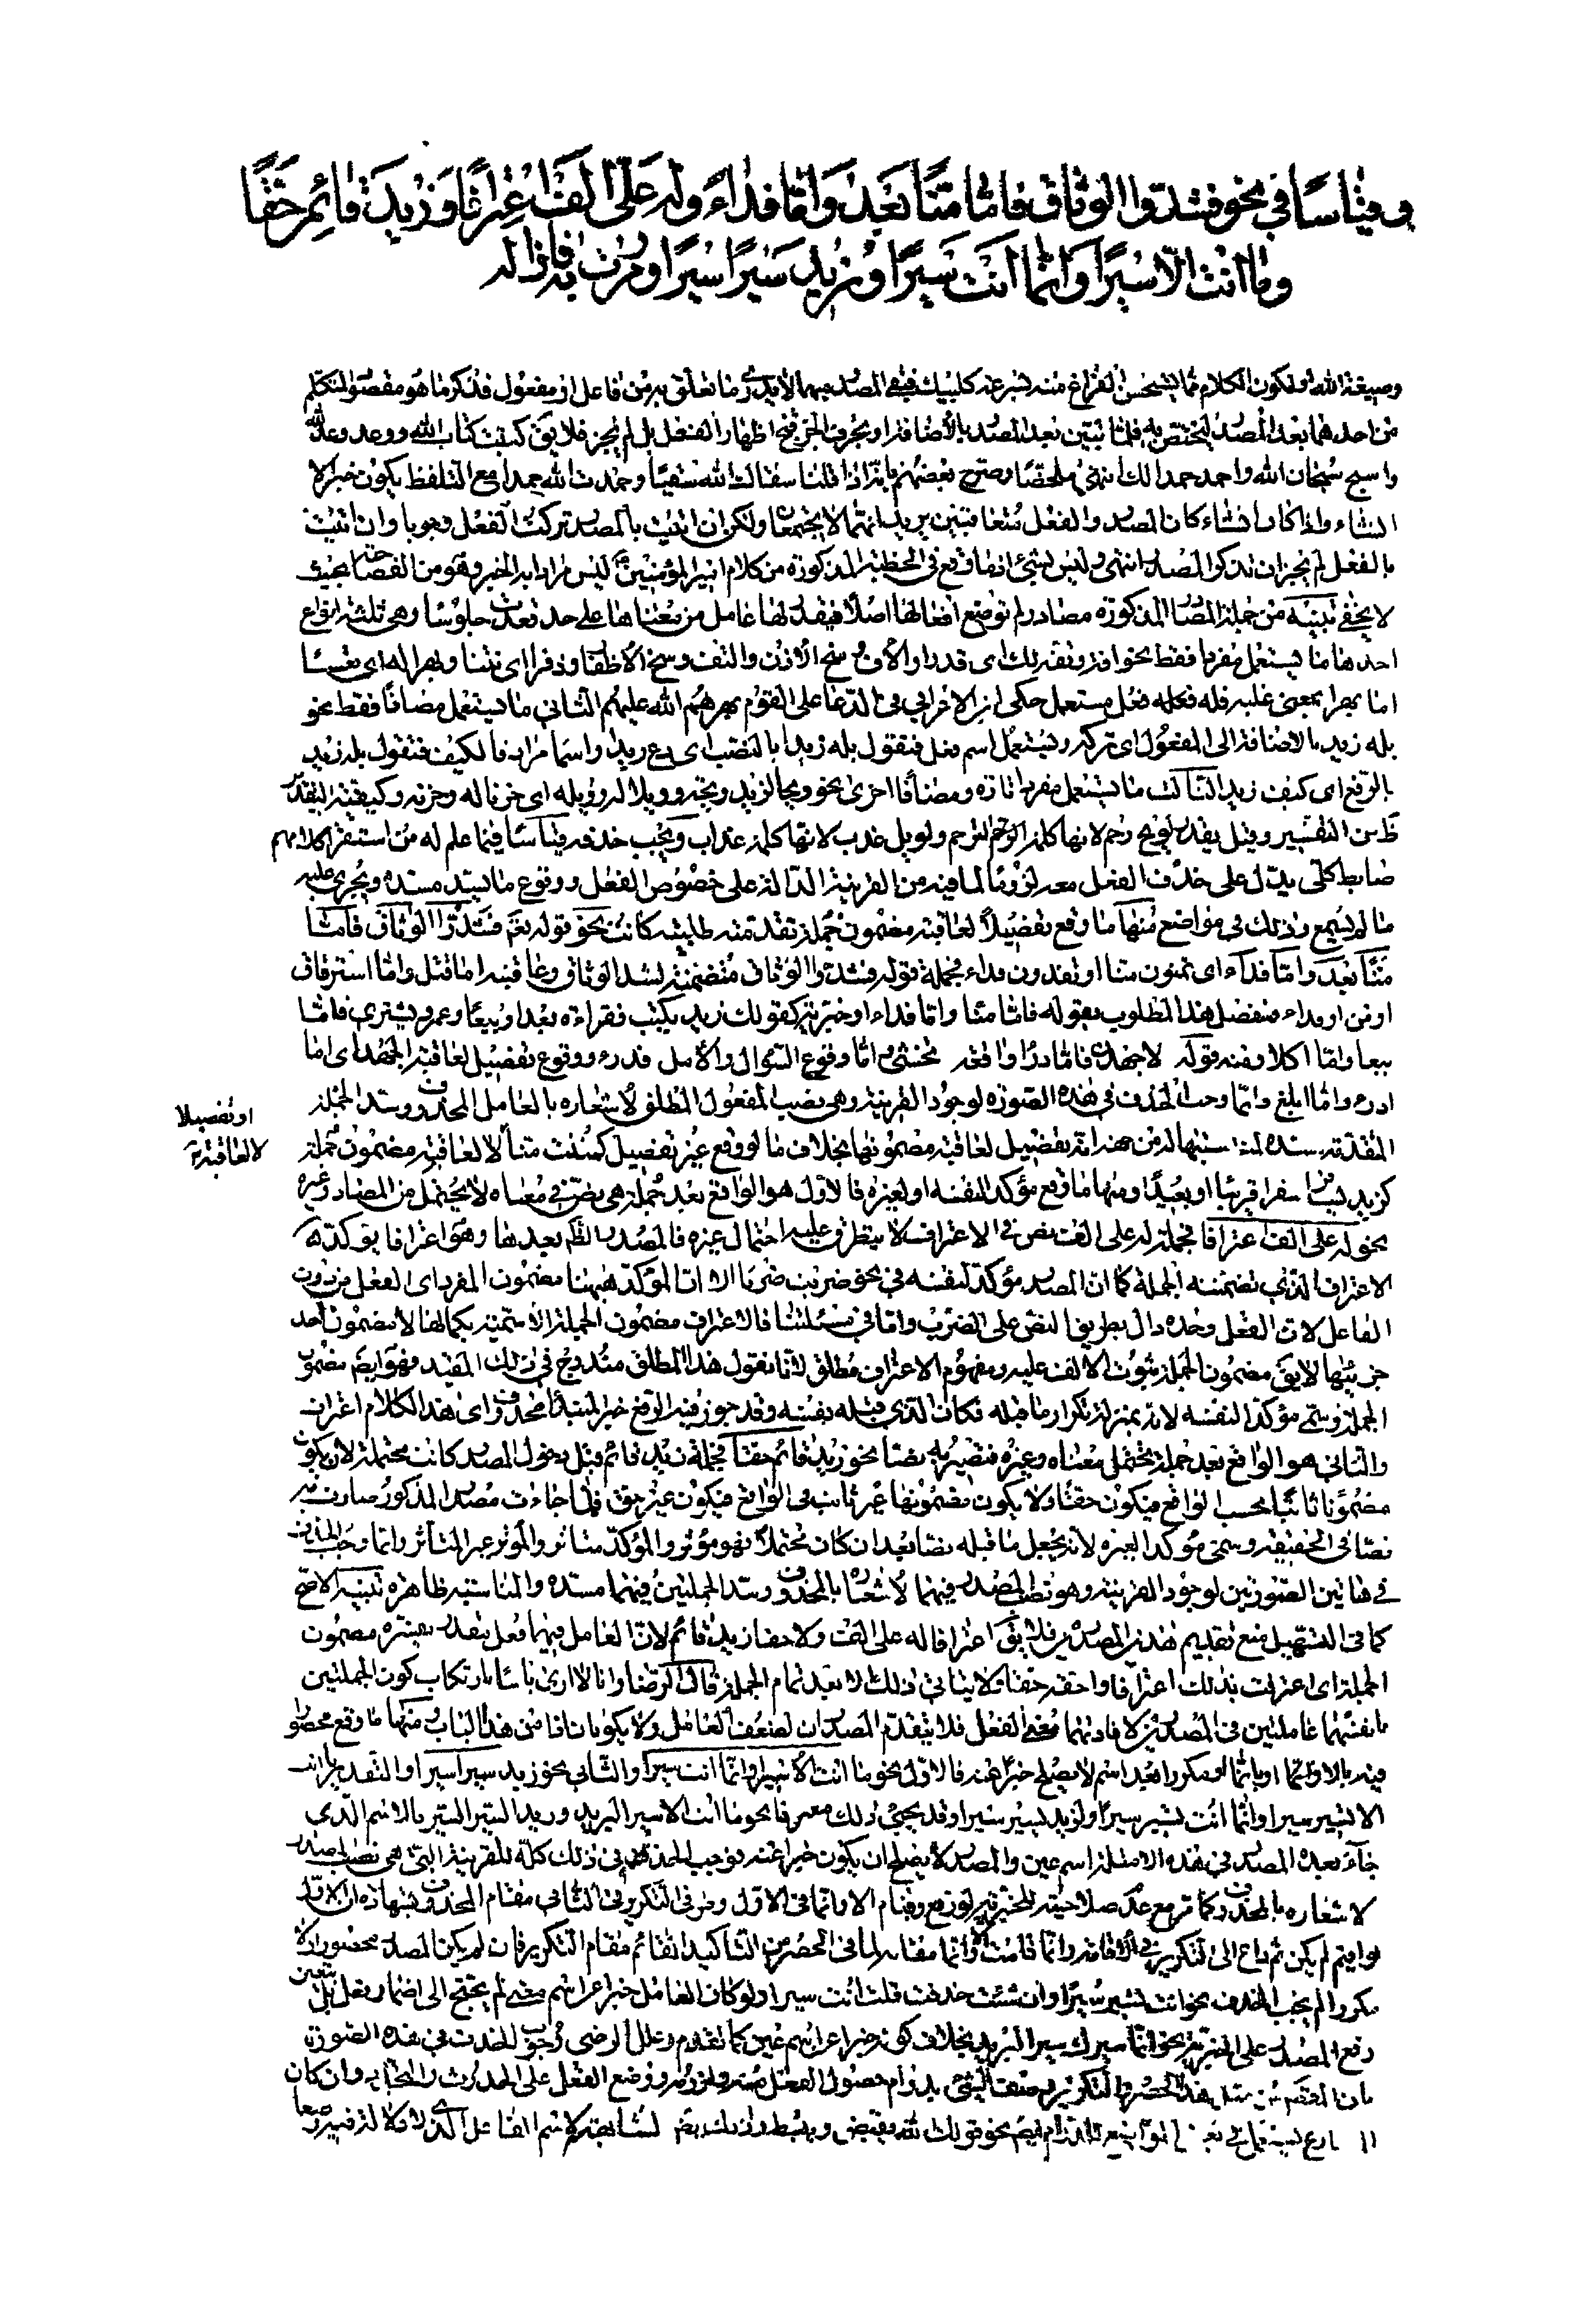 وقياسا في نحو فشدوا الوثاق فاما منا بعد واما فداء وله على الف اعترافا وزيد قائم حقا
وما انت الا سيرا وانما انت سيرا وزيد سيرا سيرا ومررت به فاذا له
وصبغة الله او لكون الكلام مما يستحسن الفراغ منه بسرعة كلبيك فبقي المصدر مبهما لا يدرى ما تعلق به من فاعل او مفعول فذكر ما هو مقصود المتكلم
من احدهما بعد المصدر ليختص به فلما تبين بعد المصدر بالاضافة او بحرف الجر قبح اظهار الفعل بل لم يجز فلا يق كتبت كتاب الله ووعد وعد الله
واسبح سبحان الله واحمد حمدا لك انتهى ملخصا وصرح بعضهم بانه اذا قلنا سقاك الله سقيا وحمدت الله حمدا مع التلفظ يكون خبرا لا
انشاء واذا كان انشاء كان المصدر والفعل متعاقبين يريد انهما لا يجتمعان ولكن ان اتيت بالمصدر تركت الفعل وجوبا وان اتيت
بالفعل لم يجز ان تذكر المصدر انتهى وليس بشيء اذ ما وقع في الخطبة المذكورة من كلام امير المؤمنين ع ليس مرادا به الخبر وهو من الفصاحة بحيث
لا يخفى تنبيه من جملة المصادر المذكورة مصادر لم توضع افعالها اصلا فيقدر لها عامل من معناها على حد قعدت جلوسا وهي ثلثة انواع
احدها ما يستعمل مفردا فقط نحو افة وتفة لك اى قذرا والاف وسخ الاذن والتف وسخ الاظفار وذفرا اى نتنا وبهرا له اى تعسا
اما بهرا بمعنى غلبه فله فعل مستعمل حكى ابن الاعرابي في الدعا على القوم بهرهم الله عليهم الثاني ما يستعمل مضافا فقط نحو
بله زيد بالاضافة الى المفعول اى تركه ويستعمل اسم فعل فتقول بله زيدا بالنصب اى دع زيدا واسما مرادفا لكيف فتقول بله زيد
بالرفع اى كيف زيد الثالث ما يستعمل مفردا تارة ومضافا اخرى نحو ويحا لزيد ويحه وويلا له وويله اى حزنا له وحزنه وكيفية التقدير
ظ من التفسير وقيل يقدر لويح رحم لانها كلمة الترحم ولويل عذب لانها كلمة عذاب ويجب حذفه قياسا فيما علم له من استقراء كلامهم
ضابط كلى يدل على حذف الفعل معه لزوما لما فيه من القرينة الدالة على خصوص الفعل ووقوع ما يسد مسده ويجرى عليه
ما لم يسمع وذلك في مواضع منها ما وقع تفصيلا لعاقبة مضمون جملة تقدمته طلبية كانت نحو قوله تعم فشدوا الوثاق فاما
منا بعد واما فداء اى تمنون منا او تفدون فداء فجملة قوله فشدوا الوثاق متضمنة لشد الوثاق وعاقبته اما قتل واما استرقاق
او من او فداء ففصل هذا المطلوب بقوله فاما منا واما فداء او خبرية كقولك زيد يكتب فقراءة بعد او بيعا وعمرو يشتري فاما
بيعا واما اكلا ومنه قوله لاجهدن فاما درء واقعة تخشى واما وقوع السؤل والامل فدرء ووقوع تفصيل لعاقبة الجهد اى اما
ادرء واما ابلغ وانما وجب الحذف في هذه الصورة لوجود القرينة وهي نصب المفعول المطلق لاشعاره بالعامل المحذوف وسد الجملة
المتقدمة مسده لمناسبتها له من جهة انه تفصيل لعاقبة مضمونها بخلاف ما لو وقع غير تفصيل كمننت منا او تفصيلا لا لعاقبة مضمون جملة
كزيد يسافر سفرا قريبا او بعيدا ومنها ما وقع مؤكدا لنفسه او لغيره فالاول هو الواقع بعد جملة هي نص في معناه لا يحتمل من المصادر غيره
نحو له على الف اعترافا فجملة له على الف نص في الاعتراف لا يتطرق عليه احتمال غيره فالمصدر الظ بعدها وهو اعترافا يؤكده
الاعتراف الذي تضمنته الجملة كما ان المصدر مؤكد لنفسه في نحو ضربت ضربا الا ان المؤكد ههنا مضمون المفرد اى الفعل من دون
الفاعل لان الفعل وحده دال بطريق النص على الضرب واما في مسئلتنا فالاعتراف مضمون الجملة الاسمية بكمالها لا مضمون احد
جزئيها لا يق مضمون الجملة ثبوت الالف عليه ومفهوم الاعتراف مطلق لانا نقول هذا المطلق مندرج في ذلك المقيد فهو ايض مضمون
الجملة وسمى مؤكدا لنفسه لانه بمنزلة تكرار ما قبله فكان الذي قبله نفسه وقد جوز فيه الرفع خبر المبتدأ محذوف اى هذا الكلام اعتراف
والثاني هو الواقع بعد جملة تحتمل معناه وغيره فتصير به نصا نحو زيد قائم حقا فجملة زيد قائم قبل دخول المصدر كانت محتملة لان يكون
مضمونا ثابتا بحسب الواقع فيكون حقا ولا يكون مضمونها غير ثابت في الواقع فيكون غير حق فلما جاءت مصدر المذكور صارت به
نصا في الحقيقة وسمى مؤكدا لغيره لانه يجعل ما قبله نصا بعد ان كان محتملا فهو مؤثر والمؤكد متاثر والمؤثر غير المتأثر وانما وجب الحذف
في هاتين الصورتين لوجود القرينة وهو نصب المصدر فيهما لاشعاره بالمحذوف وسد الجملتين فيهما مسده والمناسبة ظاهرة تنبيه الاصح
كما في التسهيل منع تقديم هذين المصدرين فلا يق اعترافا له على الف ولا حقا زيد قائم لان العامل فيهما فعل يقدر يفسره مضمون
الجملة اى اعترفت بذلك اعترافا واحقه حقا ولا يتاتى ذلك الا بعد تمام الجملة قال الرضى وانا لا ارى باسا بارتكاب كون الجملتين
بانفسهما عاملتين في المصدرين لافادتهما معنى الفعل فلا يتقدم المصدران لضعف العامل ولا يكونان اذا من هذا الباب ومنها ما وقع محصورا
فيه بالا او انما او مكررا بعد اسم لا يصلح خبرا عنه فالاول نحو ما انت الا سيرا وانما انت سيرا والثاني نحو زيد سيرا سيرا والتقدير ما انت
الا تسير سيرا وانما انت تسير سيرا وزيد يسير سيرا وقد يجيء ذلك معرفا نحو ما انت الا سير البريد وزيد السير السير بالاسم الذي
جاء بعده المصدر في هذه الامثلة اسم عين والمصدر لا يصلح ان يكون خبرا عنه فوجب الحذف في ذلك كله للقرينة التي هي نصب المصدر
لاشعاره بالمحذوف كما مر مع عدم صلاحيته للخبرية لو رفع وقيام الا وانما في الاول وطرفي التكرير في الثاني مقام المحذوف
لم يكن ثم داع الى التكرير وانما قامت الا وانما مقامه لما في الحصر من التأكيد القائم مقام التكرير فان لم يكن المصدر محصورا ولا
مكررا لم يجب الحذف نحو انت تسير سيرا وان شئت حذفت قلت انت سيرا ولو كان العامل خبرا عن اسم معنى لم يحتج الى اضمار فعل بل يتعين
رفع المصدر على الخبرية نحو انما سيرك سير البريد بخلاف كونه خبرا عن اسم عين كما تقدم وعلل الرضى وجوب الحذف في هذه الصورة
بان المقصود من مثل هذا الحصر والتكرير وصف الشيء بدوام حصول الفعل منه ولزومه ووضع الفعل على الحدوث والتجدد وان كان
المضارع نحو قولك الله يقبض ويبسط وذلك ايض لمشابهته لاسم الفاعل الذي لا دلالة فيه وضعا
او تفصيلا
لا لعاقبة